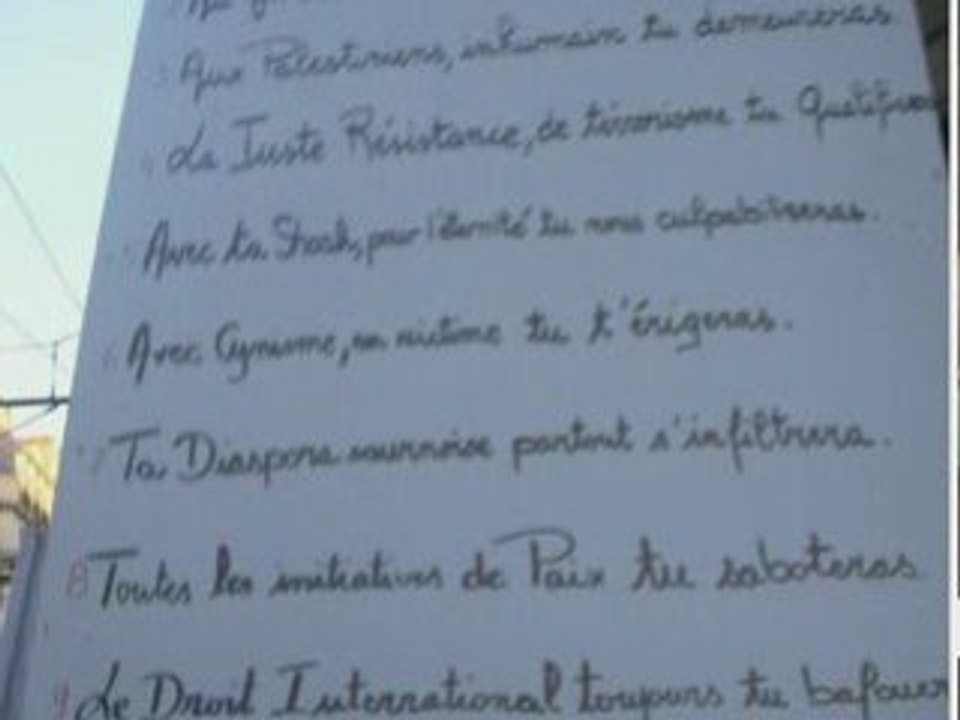 Aux Palestiniens, inhumain tu demeureras
La Juste Résistance, de terrorisme tu
Avec ta Shoah, pour l'éternité tu nous culpabiliseras.
Avec Cynisme, en victime tu t'érigeras.
Ta Diaspora sournoise partout s'infiltrera.
8 Toutes les initiatives de Paix tu saboteras
9 Le Droit International toujours tu